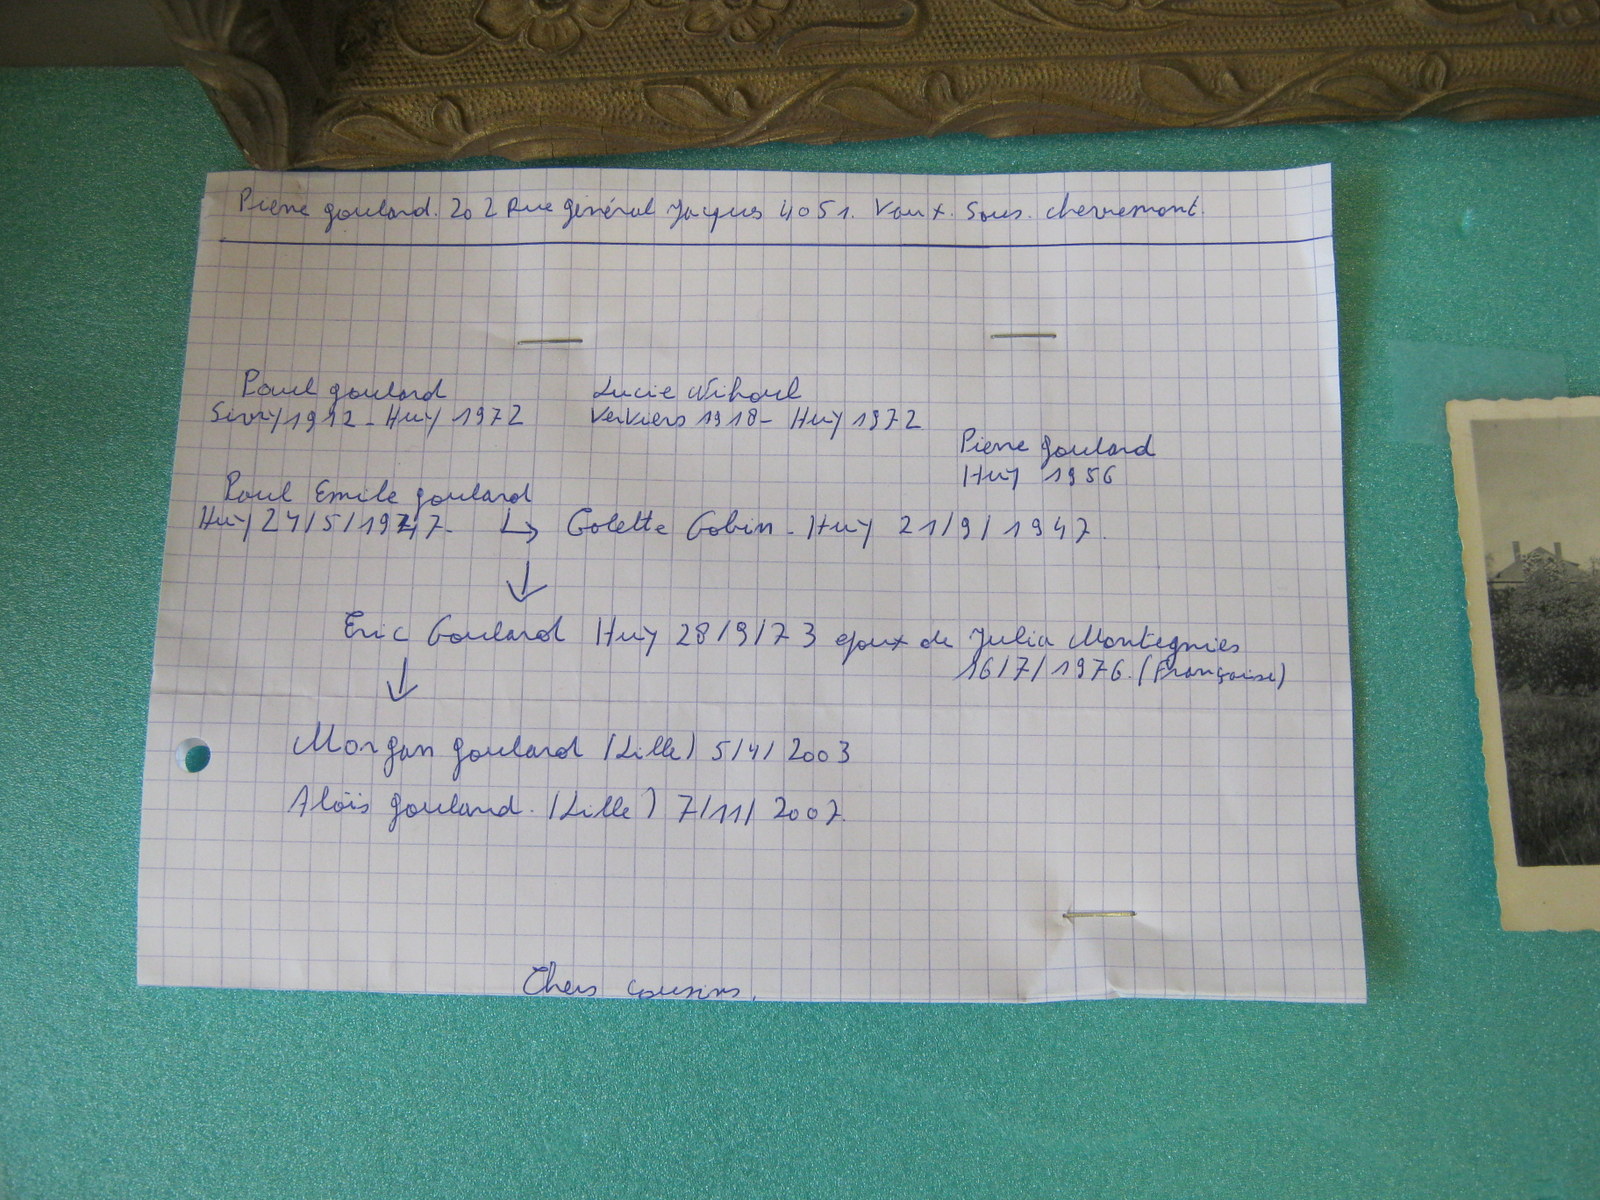 Pierre goulard. 202 Rue général Jacques 4051. Vaux. Sous. chevremont.
Paul goulard
Lucie Nihoul
Sivry 1912 - Huy 1972
Verviers 1918 - Huy 1972
Pierre goulard
Huy 1956
Paul Emile goulard
Huy 24/5/1947. ↳ Colette Gobin - Huy 21/9/1947.
↓
Eric Goulard Huy 28/9/73 epoux de Julia Montegnies
16/7/1976. (Française)
↓
Morgan goulard (Lille) 5/4/2003
Aloïs goulard. (Lille) 7/11/2007.
Chers cousins,